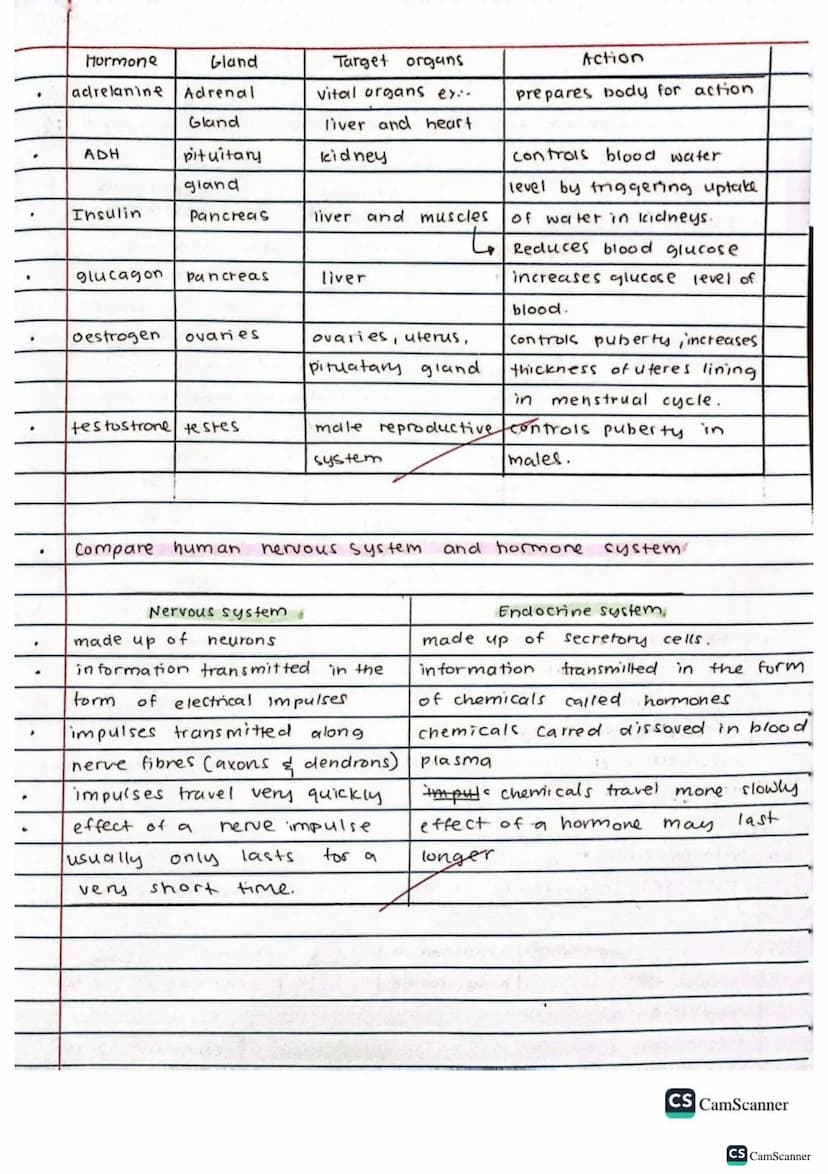 Hormone Gland Target organs Action
adrelanine Adrenal vital organs ex:- prepares body for action
Gland liver and heart
ADH pituitary kidney controls blood water
gland level by triggering uptake
Insulin Pancreas liver and muscles of water in kidneys.
Reduces blood glucose
glucagon pancreas liver increases glucose level of
blood.
oestrogen ovaries ovaries, uterus, controls puberty, increases
pituatary gland thickness of uteres lining
in menstrual cycle.
testostrone testes male reproductive controls puberty in
system males.
Compare human nervous system and hormone system
Nervous system Endocrine system
made up of neurons made up of secretory cells.
information transmitted in the information transmitted in the form
form of electrical impulses of chemicals called hormones
impulses transmitted along chemicals carred dissoved in blood
nerve fibres (axons & dendrons) plasma
impulses travel very quickly chemicals travel more slowly
effect of a nerve impulse effect of a hormone may last
usually only lasts for a longer
very short time.
CS CamScanner
CS CamScanner